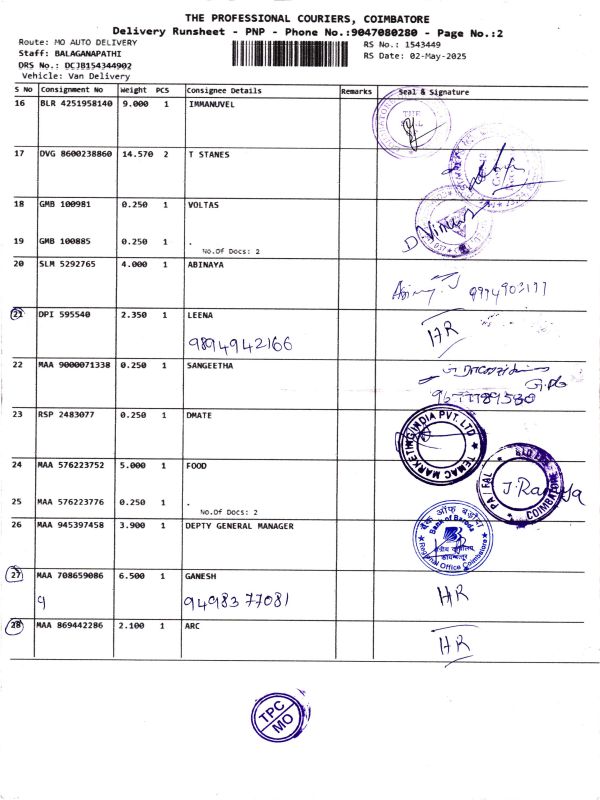 THE PROFESSIONAL COURIERS, COIMBATORE
Delivery Runsheet - PNP - Phone No.:9047080280 - Page No.:2
Route: MO AUTO DELIVERY
RS No.: 1543449
Staff: BALAGANAPATHI
RS Date: 02-May-2025
DRS No.: DCJB154344902
Vehicle: Van Delivery
S No Consignment No Weight PCS Consignee Details Remarks Seal & Signature
16 BLR 4251958140 9.000 1 IMMANUVEL
17 DVG 8600238860 14.570 2 T STANES
18 GMB 100981 0.250 1 VOLTAS
19 GMB 100885 0.250 1 .
No.Of Docs: 2
20 SLM 5292765 4.000 1 ABINAYA
21 DPI 595540 2.350 1 LEENA HR
9894942166
22 MAA 9000071338 0.250 1 SANGEETHA
23 RSP 2483077 0.250 1 DMATE
TEMAC MARKETING INDIA PVT. LTD
24 MAA 576223752 5.000 1 FOOD
COIMBATORE
25 MAA 576223776 0.250 1 .
No.Of Docs: 2
26 MAA 945397458 3.900 1 DEPTY GENERAL MANAGER
बैंक ऑफ़ बड़ौदा
Bank of Baroda
क्षेत्रीय कार्यालय
कोयम्बतूर
Regional Office Coimbatore
27 MAA 708659086 6.500 1 GANESH
9 9498377081 HR
28 MAA 869442286 2.100 1 ARC
HR
TPC
MO